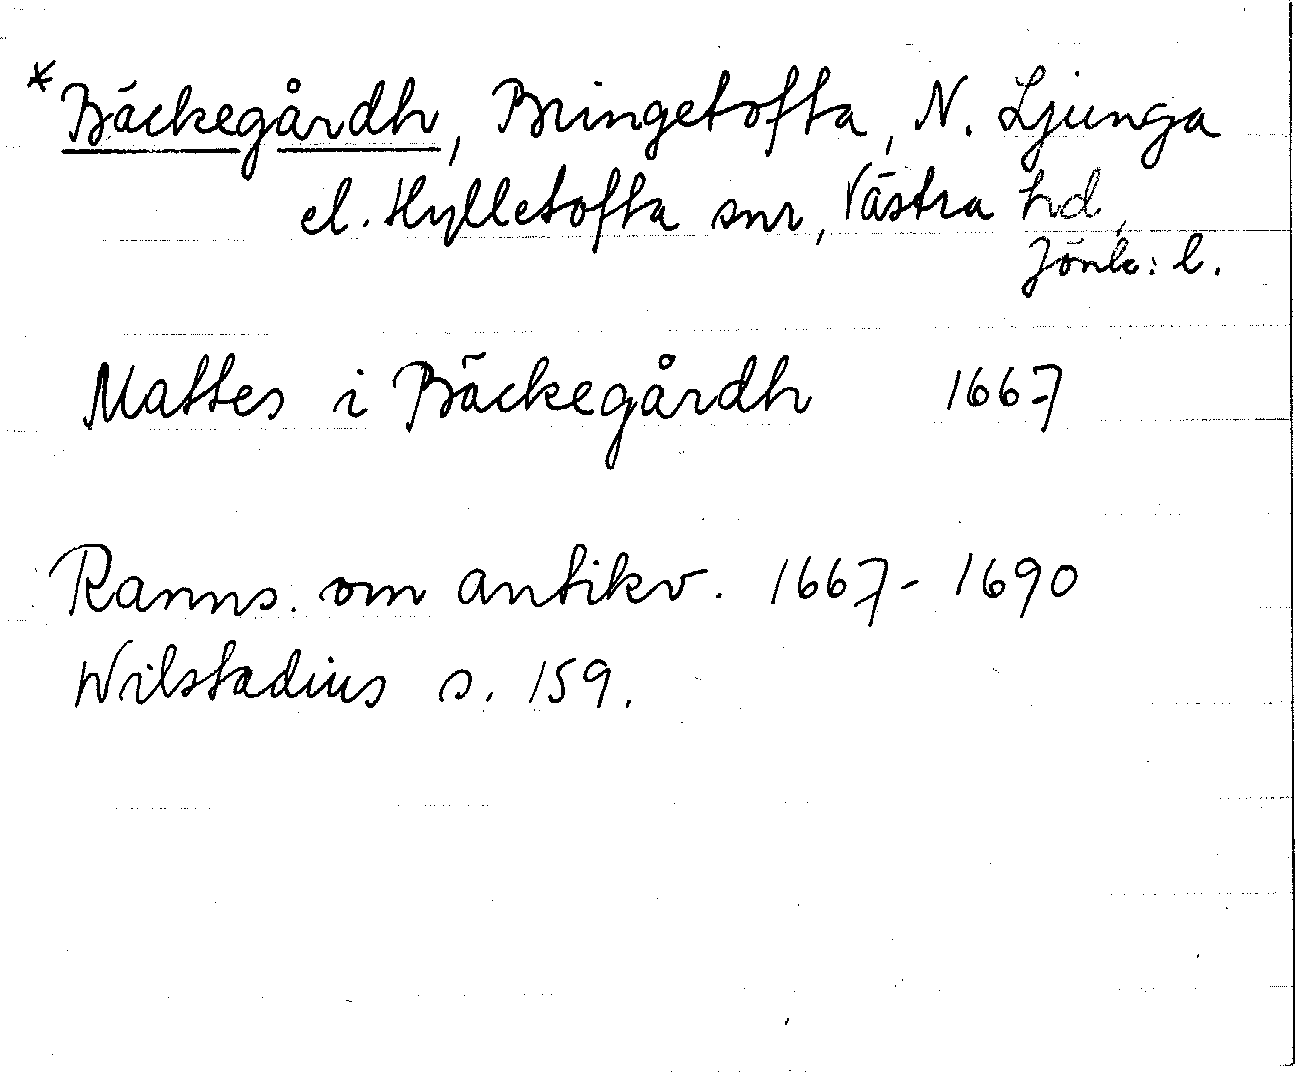 *Bäckegårdh, Bringetofta, N. Ljunga
el. Hylletofta snr, Västra hd,
Jönk: l.
Mattes i Bäckegårdh 1667
Ranns. om antikv. 1667-1690
Wilstadius s. 159.